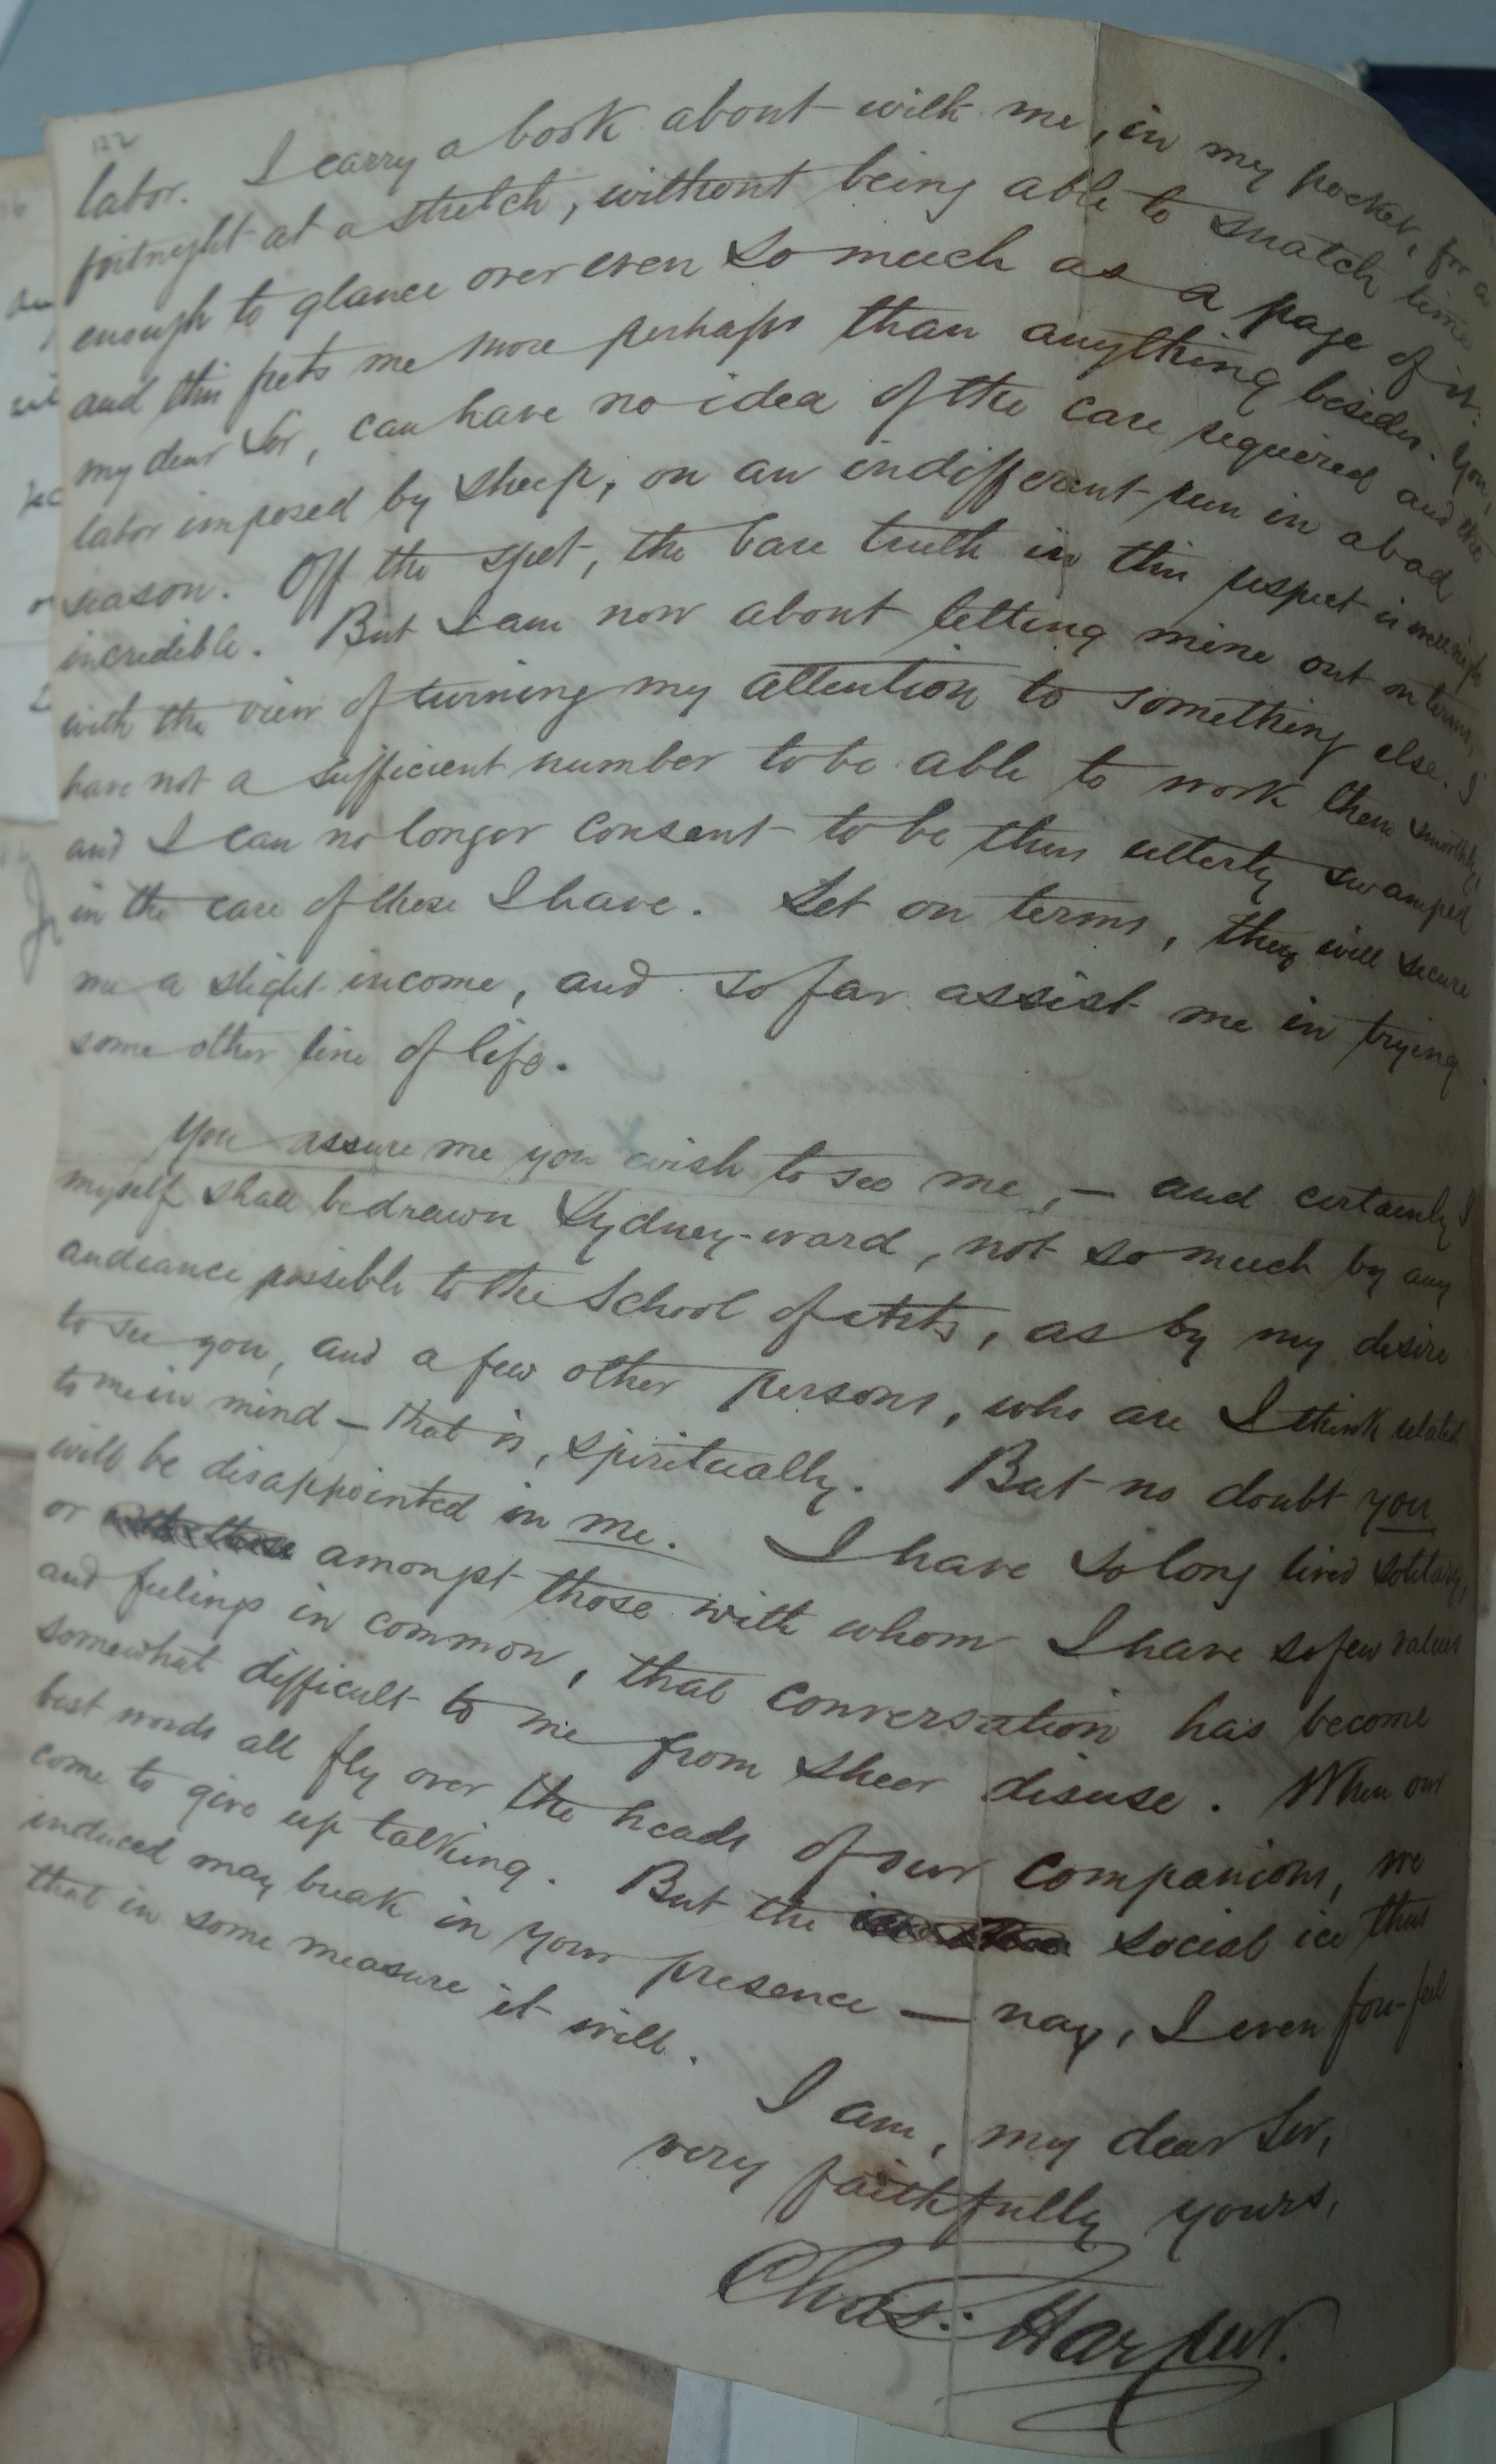 122
labor. I carry a book about with me, in my pocket, for a
fortnight at a stretch, without being able to snatch time
enough to glance over even so much as a page of it:
and this frets me more perhaps than anything besides. You,
my dear Sir, can have no idea of the care required and the
labor imposed by sheep, on an indifferent run in a bad
season. Off the spot, the bare truth in this respect is well nigh
incredible. But I am now about letting mine out on terms,
with the view of turning my attention to something else. I
have not a sufficient number to be able to work them smoothly,
and I can no longer consent to be thus utterly swamped
in the care of these I have. Let on terms, they will secure
me a slight income, and so far assist me in trying
some other line of life.
You assure me you wish to see me, — and certainly I
myself shall be drawn Sydney-ward, not so much by any
audiance possible to the School of Arts, as by my desire
to see you, and a few other persons, who are I think related
to me in mind — that is, spiritually. But no doubt you
will be disappointed in me. I have so long lived solitary,
or amongst those with whom I have so few values
and feelings in common, that conversation has become
somewhat difficult to me from sheer disuse. When our
best words all fly over the heads of our companions, we
come to give up talking. But the social ice thus
induced may break in your presence — nay, I even fore-feel
that in some measure it will.
I am, my dear Sir,
very faithfully yours,
Chas. Harpur.